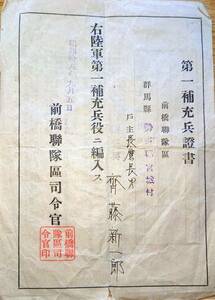 第一補充兵證書
前橋聯隊區
群馬縣
宮城村
戶主長麿長男
齊藤新一郎
右陸軍第一補充兵役ニ編入ス
年 月五日
前橋聯隊區司令官
前橋聯
隊區司
令官印